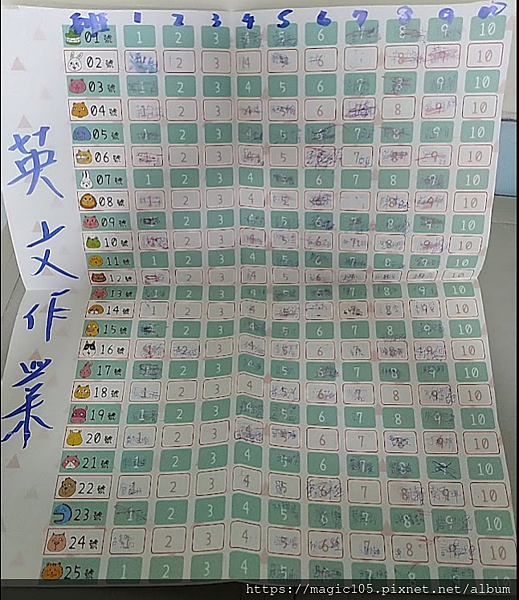 班 1 2 3 4 5 6 7 8 9 10
英文作業
01號 1 2 3 4 5 6 7 8 9 10
02號 1 2 3 4 5 6 7 8 9 10
03號 1 2 3 4 5 6 7 8 9 10
04號 1 2 3 4 5 6 7 8 9 10
05號 1 2 3 4 5 6 7 8 9 10
06號 1 2 3 4 5 6 7 8 9 10
07號 1 2 3 4 5 6 7 8 9 10
08號 1 2 3 4 5 6 7 8 9 10
09號 1 2 3 4 5 6 7 8 9 10
10號 1 2 3 4 5 6 7 8 9 10
11號 1 2 3 4 5 6 7 8 9 10
12號 1 2 3 4 5 6 7 8 9 10
13號 1 2 3 4 5 6 7 8 9 10
14號 1 2 3 4 5 6 7 8 9 10
15號 1 2 3 4 5 6 7 8 9 10
16號 1 2 3 4 5 6 7 8 9 10
17號 1 2 3 4 5 6 7 8 9 10
18號 1 2 3 4 5 6 7 8 9 10
19號 1 2 3 4 5 6 7 8 9 10
20號 1 2 3 4 5 6 7 8 9 10
21號 1 2 3 4 5 6 7 8 9 10
22號 1 2 3 4 5 6 7 8 9 10
23號 1 2 3 4 5 6 7 8 9 10
24號 1 2 3 4 5 6 7 8 9 10
25號 1 2 3 4 5 6 7 8 9 10
https://magic105.pixnet.net/album